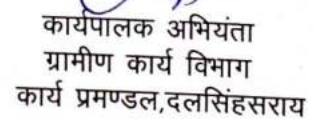 कार्यपालक अभियंता
ग्रामीण कार्य विभाग
कार्य प्रमण्डल,दलसिंहसराय